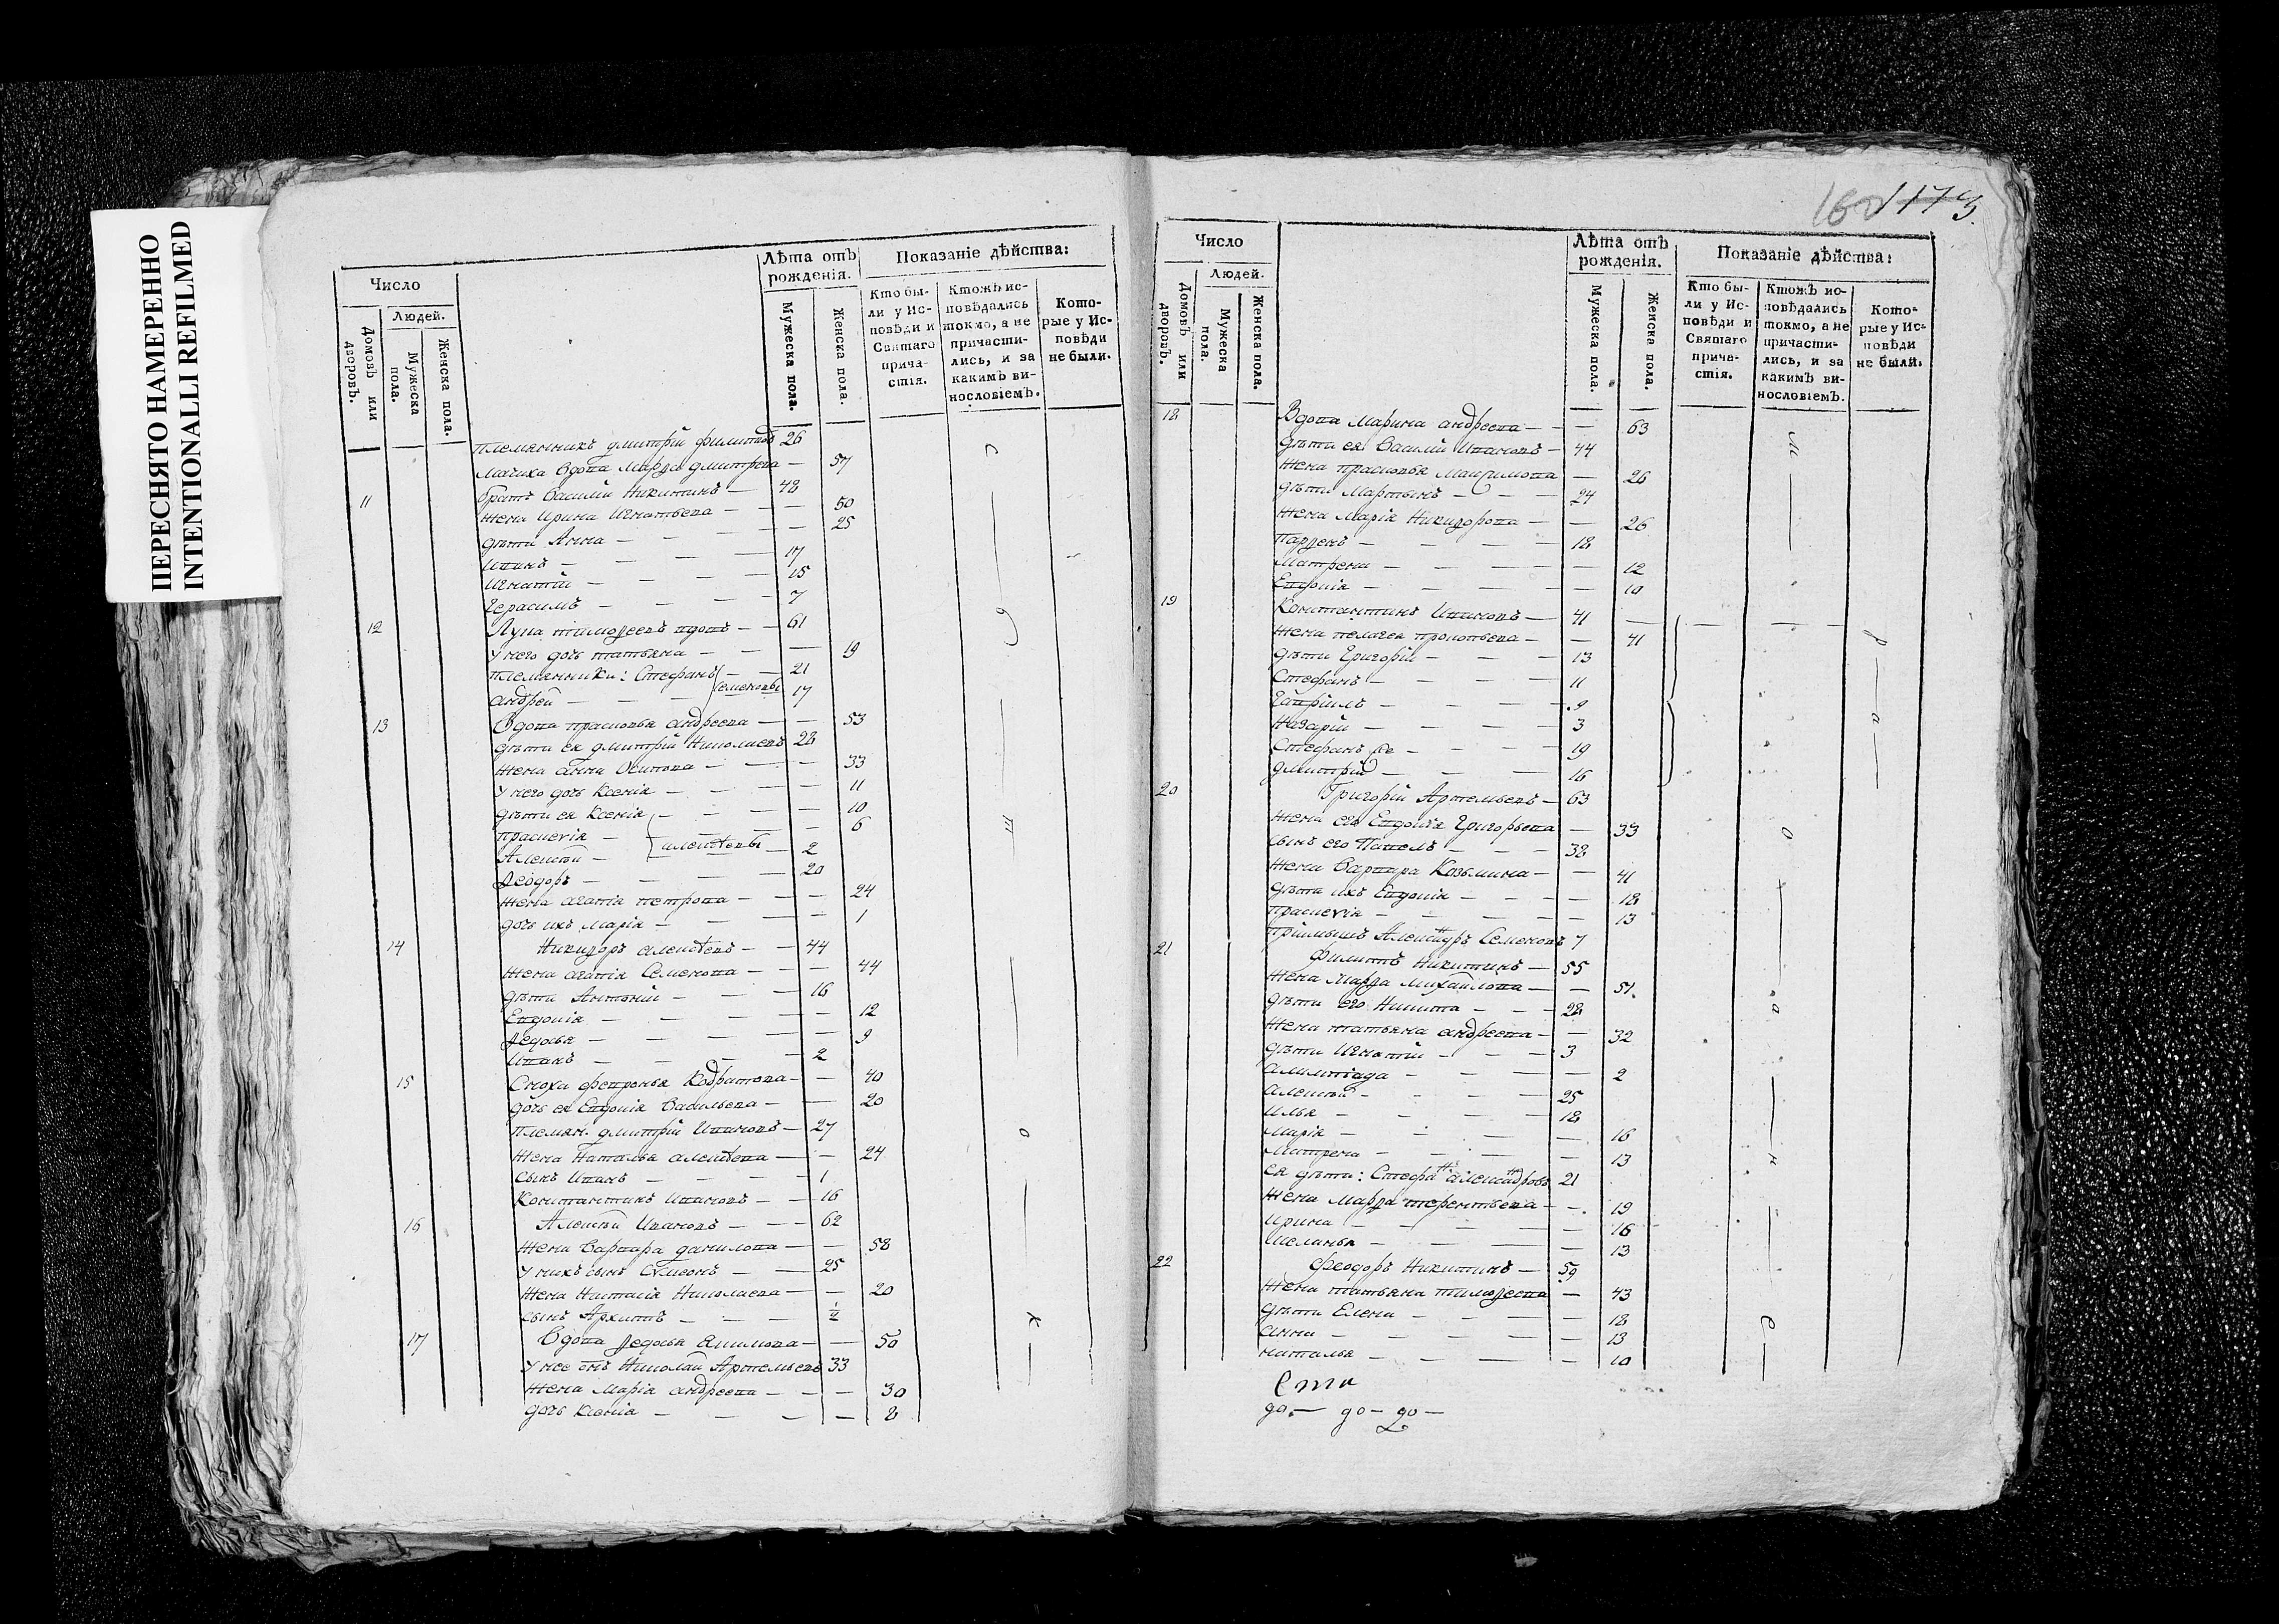 ПЕРЕСНЯТО НАМЕРЕННО
INTENTIONALLI REFILMED
Число
Людей.
Домовъ или дворовъ.
Мужеска пола.
Женска пола.
Лѣта отъ рожденія.
Мужеска пола.
Женска пола.
Показаніе дѣйства:
Кто бы-
ли у Ис-
повѣди и
Святаго
прича-
стія.
Ктожъ ис-
повѣдались
токмо, а не
причасти-
лись, и за
какимъ ви-
нословіемъ.
Кото-
рые у Ис-
повѣди
не были.
племянникъ дмитрій филиповъ 26
мачиха вдова Марѳа дмитрева — 57
11 братъ Василій Никитинъ — 48
жена Ирина Игнатьева — 50
дѣти Анна — 25
Иванъ — 17
Игнатій — 15
Герасимъ — 7
12 Лука тимоѳеевъ вдовъ — 61
у него дочь татьяна — 19
племянники: Стефанъ семеновы — 21
андрей — 17
13 Вдова прасковья андреева — 53
дѣти ея дмитрій Николаевъ 28
жена анна Осипова — 33
у него дочь Ксенія — 11
дѣти ея Ксенія — 10
прасковія — 6
Алексѣй — алексѣевы — 2
Ѳеодоръ — 20
жена агапія петрова — 24
дочь ихъ марія — 1
14 Никиѳоръ алексѣевъ — 44
жена агапія Семенова — 44
дѣти Антоній — 16
Евдокія — 12
Ѳедосья — 9
Иванъ — 2
15 Сноха февронья Кодратова — 40
дочь ея Евдокія Васильева — 20
племян. дмитрій Ивановъ — 27
жена Наталья алексѣева — 24
сынъ Иванъ — 1
Константинъ Ивановъ — 16
16 Алексѣй Ивановъ — 62
жена Варвара данилова — 58
у нихъ сынъ Сѵмеонъ — 25
жена Наталія Николаева — 20
сынъ Архипъ — ½
17 Вдова Ѳедосья Екимова — 50
у нее сынъ Николай Артемьевъ 33
жена Марія андреева — 30
дочь Ксенія — 8
160 1173
Число
Людей.
Домовъ или дворовъ.
Мужеска пола.
Женска пола.
Лѣта отъ рожденія.
Мужеска пола.
Женска пола.
Показаніе дѣйства:
Кто бы-
ли у Ис-
повѣди и
Святаго
прича-
стія.
Ктожъ ис-
повѣдались
токмо, а не
причасти-
лись, и за
какимъ ви-
нословіемъ.
Кото-
рые у Ис-
повѣди
не были.
18 Вдова Марина андреева — 63
дѣти ея Василій Ивановъ — 44
жена прасковья Максимова — 26
дѣти Мартынъ — 24
жена Марія Никиѳорова — 26
парѳенъ — 18
Матрена — 12
Евфимія — 10
19 Константинъ Ивановъ — 41
жена пелагея прокопьева — 41
дѣти Григорій — 13
Стефанъ — 11
Гавріилъ — 9
Назарій — 3
Стефанъ же — 19
дмитрій — 16
20 Григорій Артемьевъ — 63
жена его Евдокія Григорьева — 33
сынъ его Павелъ — 38
жена Варвара Козьмина — 41
дѣти ихъ Евдокія — 18
прасковія — 13
пріимышъ Александръ Семеновъ 7
21 Филипъ Никитинъ — 55
жена Марѳа михайлова — 51
дѣти его Никита — 28
жена татьяна андреева — 32
дѣти Игнатій — 3
алимпіада — 2
алексѣй — 25
Илья — 18
марія — 16
Матрена — 13
ея дѣти: Стефанъ александровъ 21
жена Марѳа терентьева — 19
Ирина — 16
Меланья — 13
22 Ѳеодоръ Никитинъ — 59
жена татьяна тимоѳеева — 43
дѣти Елена — 18
анна — 13
наталья — 10